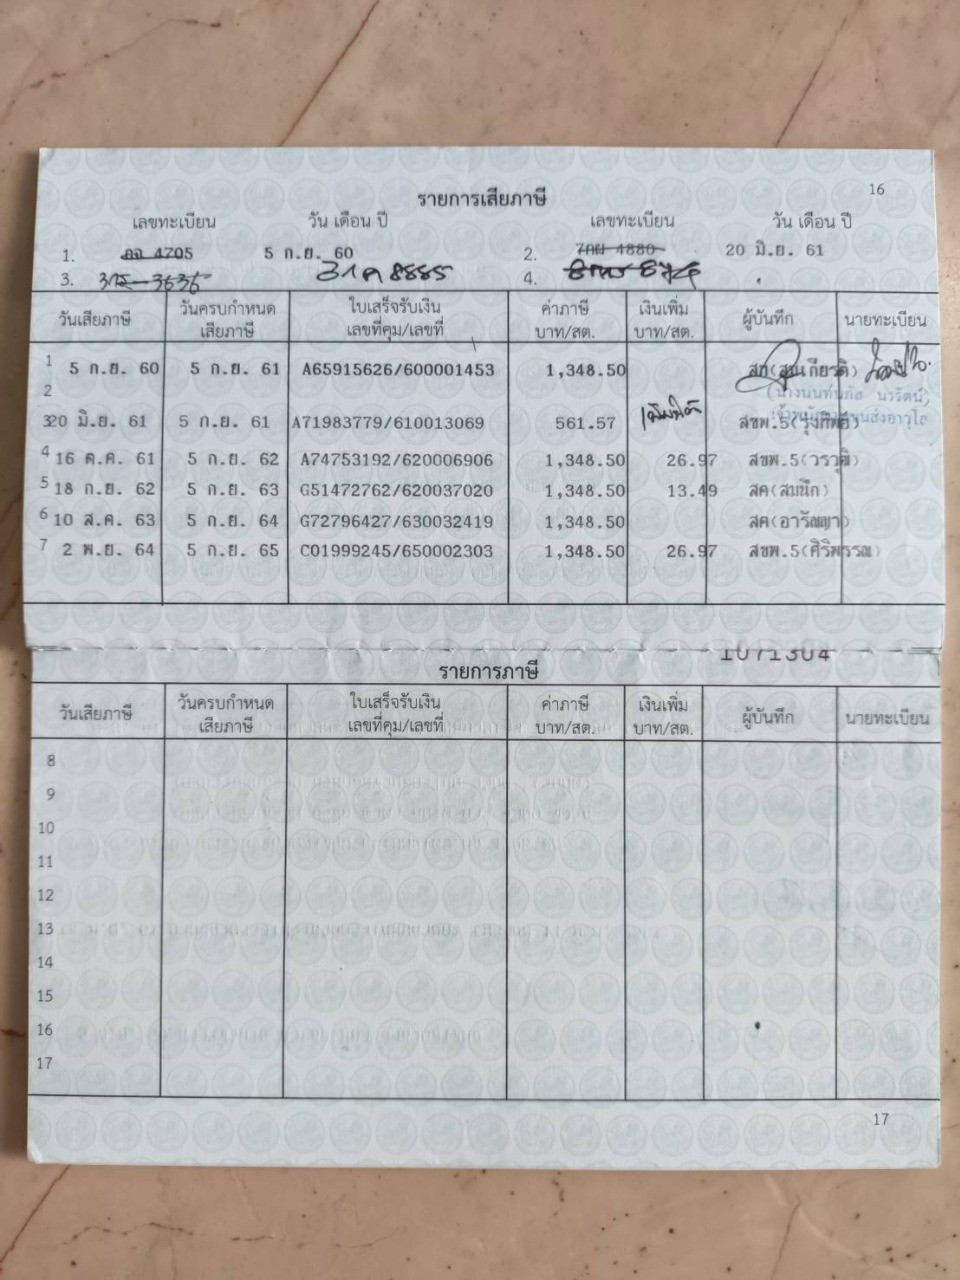 16
รายการเสียภาษี
เลขทะเบียน วัน เดือน ปี เลขทะเบียน วัน เดือน ปี
1. 4705 5 ก.ย. 60 2. 7กผ 4880 20 มิ.ย. 61
3. 3636 8885 4.
วันเสียภาษี วันครบกำหนดเสียภาษี ใบเสร็จรับเงิน เลขที่คุม/เลขที่ ค่าภาษี บาท/สต. เงินเพิ่ม บาท/สต. ผู้บันทึก นายทะเบียน
1 5 ก.ย. 60 5 ก.ย. 61 A65915626/600001453 1,348.50
2
3 20 มิ.ย. 61 5 ก.ย. 61 A71983779/610013069 561.57 สขพ.5
4 16 ต.ค. 61 5 ก.ย. 62 A74753192/620006906 1,348.50 26.97 สขพ.5(วรวุฒิ)
5 18 ก.ย. 62 5 ก.ย. 63 G51472762/620037020 1,348.50 13.49 สค(สมนึก)
6 10 ส.ค. 63 5 ก.ย. 64 G72796427/630032419 1,348.50 สค(อารัญญา)
7 2 พ.ย. 64 5 ก.ย. 65 C01999245/650002303 1,348.50 26.97 สขพ.5(ศิริพรรณ)
1071304
รายการภาษี
วันเสียภาษี วันครบกำหนดเสียภาษี ใบเสร็จรับเงิน เลขที่คุม/เลขที่ ค่าภาษี บาท/สต. เงินเพิ่ม บาท/สต. ผู้บันทึก นายทะเบียน
8
9
10
11
12
13
14
15
16
17
17